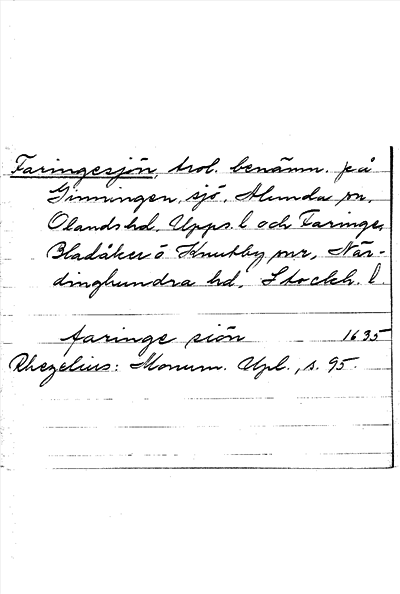 Faringesjön, trol. benämn. på
Ginningen, sjö, Alunda sn,
Olands hd, Upps. l och Faringe,
Bladåker o Knutby snr, När-
dinghundra hd, Stockh. l.
faringe siön 1635
Rhezelius: Monum. Upl., s. 95.